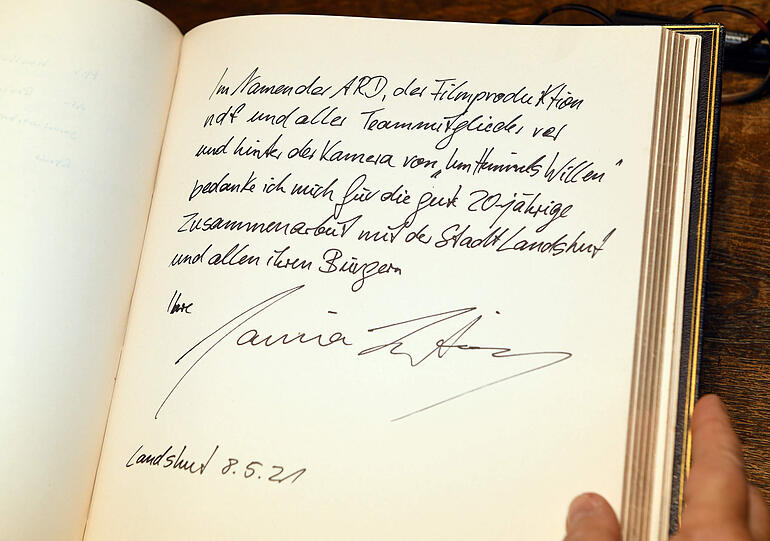 Im Namen der ARD, der Filmproduktion
ndf und aller Teammitglieder vor
und hinter der Kamera von „Um Himmels Willen"
bedanke ich mich für die gute 20-jährige
Zusammenarbeit mit der Stadt Landshut
und allen ihren Bürgern
Ihre
Janina
Landshut 8.5.21